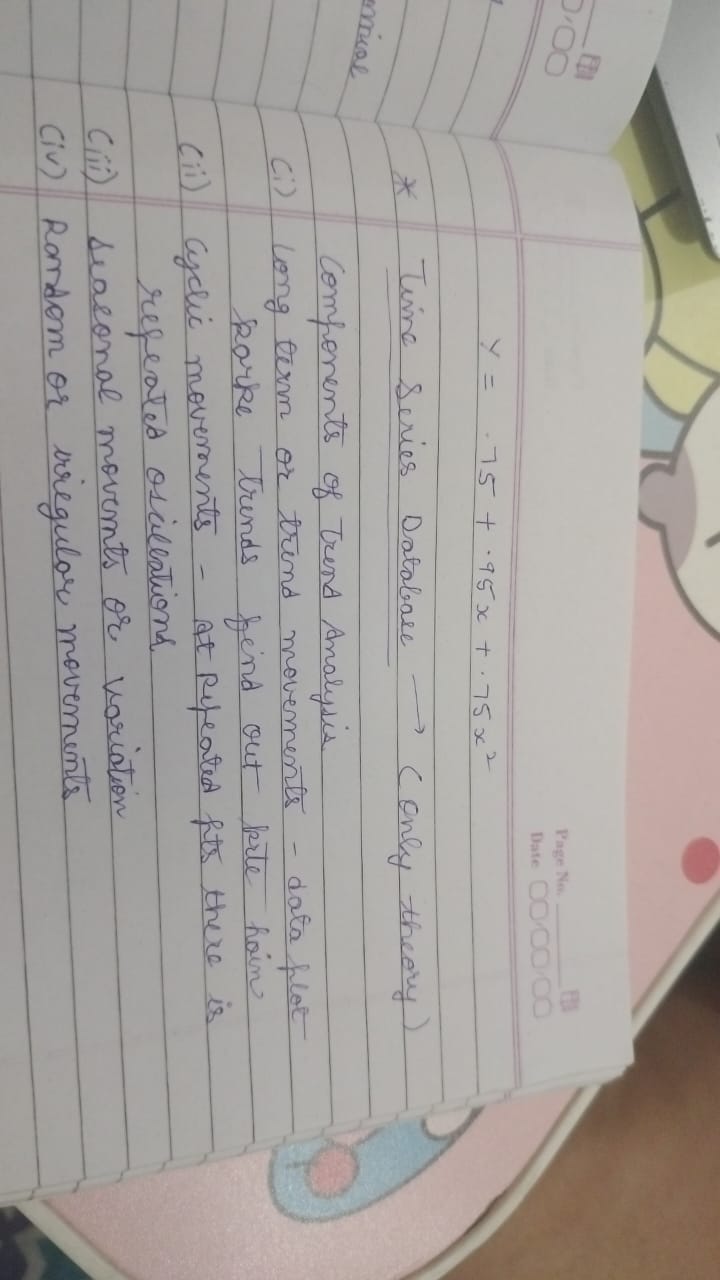 Page No.
Date
Y = .75 + .95x + .75x²
* Time Series Database → (only theory)
Components of Trend Analysis
(i) Long term or trend movements - data plot
karke Trends find out krte hain
(ii) Cyclic movements - at repeated pts there is
repeated oscillations
(iii) Seasonal movemts or variation
(iv) Random or irregular movements